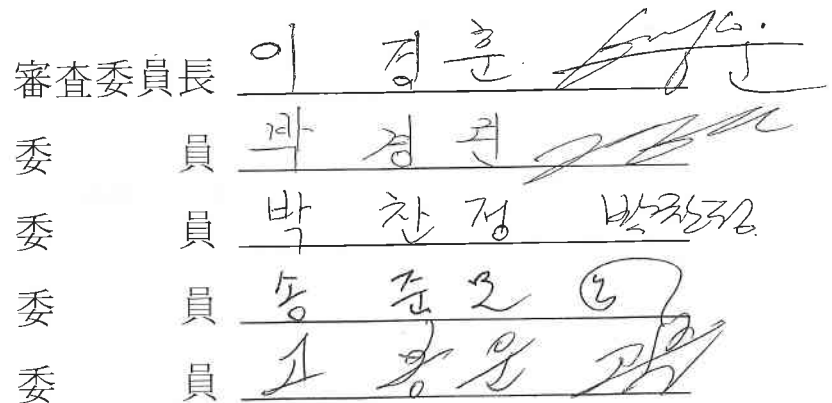 審査委員長 이 경훈
委 員 박 경 권
委 員 박 찬 정 박찬정
委 員 송 준 모
委 員